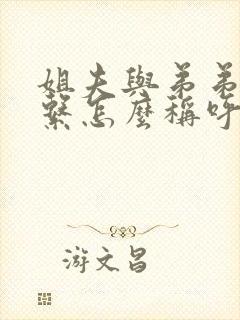 姐夫與弟弟
繫怎麼稱呼
游文昌